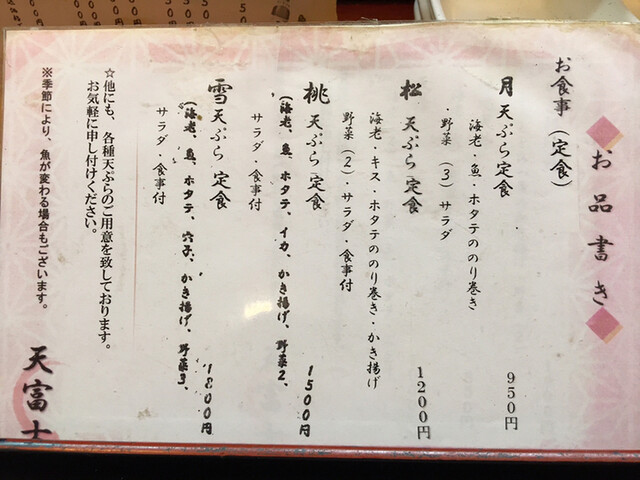 お品書き
お食事（定食）
月 天ぷら定食 950円
海老・魚・ホタテののり巻き
・野菜（3）サラダ
松 天ぷら定食 1200円
海老・キス・ホタテののり巻き・かき揚げ
野菜（2）・サラダ・食事付
桃 天ぷら定食 1500円
（海老、魚、ホタテ、イカ、かき揚げ、野菜2、
サラダ・食事付
雪 天ぷら定食 1800円
（海老、魚、ホタテ、穴子、かき揚げ、野菜3、
サラダ・食事付
☆他にも、各種天ぷらのご用意を致しております。
お気軽に申し付けください。
※季節により、魚が変わる場合もございます。
天富士